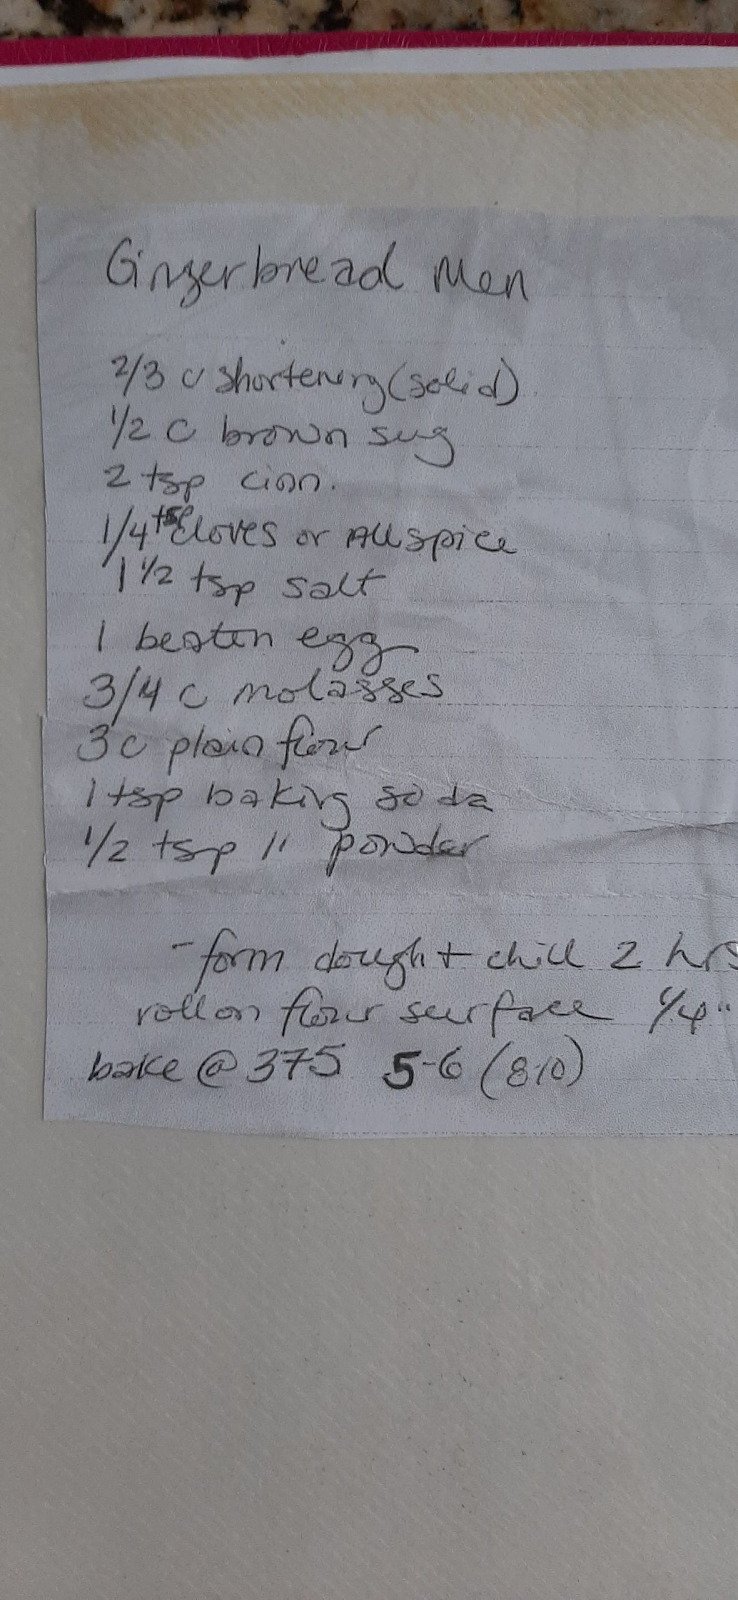 Gingerbread Men
2/3 c shortening (solid)
1/2 c brown sug
2 tsp cinn.
1/4 tsp cloves or Allspice
1 1/2 tsp salt
1 beaten egg
3/4 c molasses
3 c plain flour
1 tsp baking soda
1/2 tsp " powder
- form dough + chill 2 hrs
roll on flour surface 1/4"
bake @ 375 5-6 (8-10)